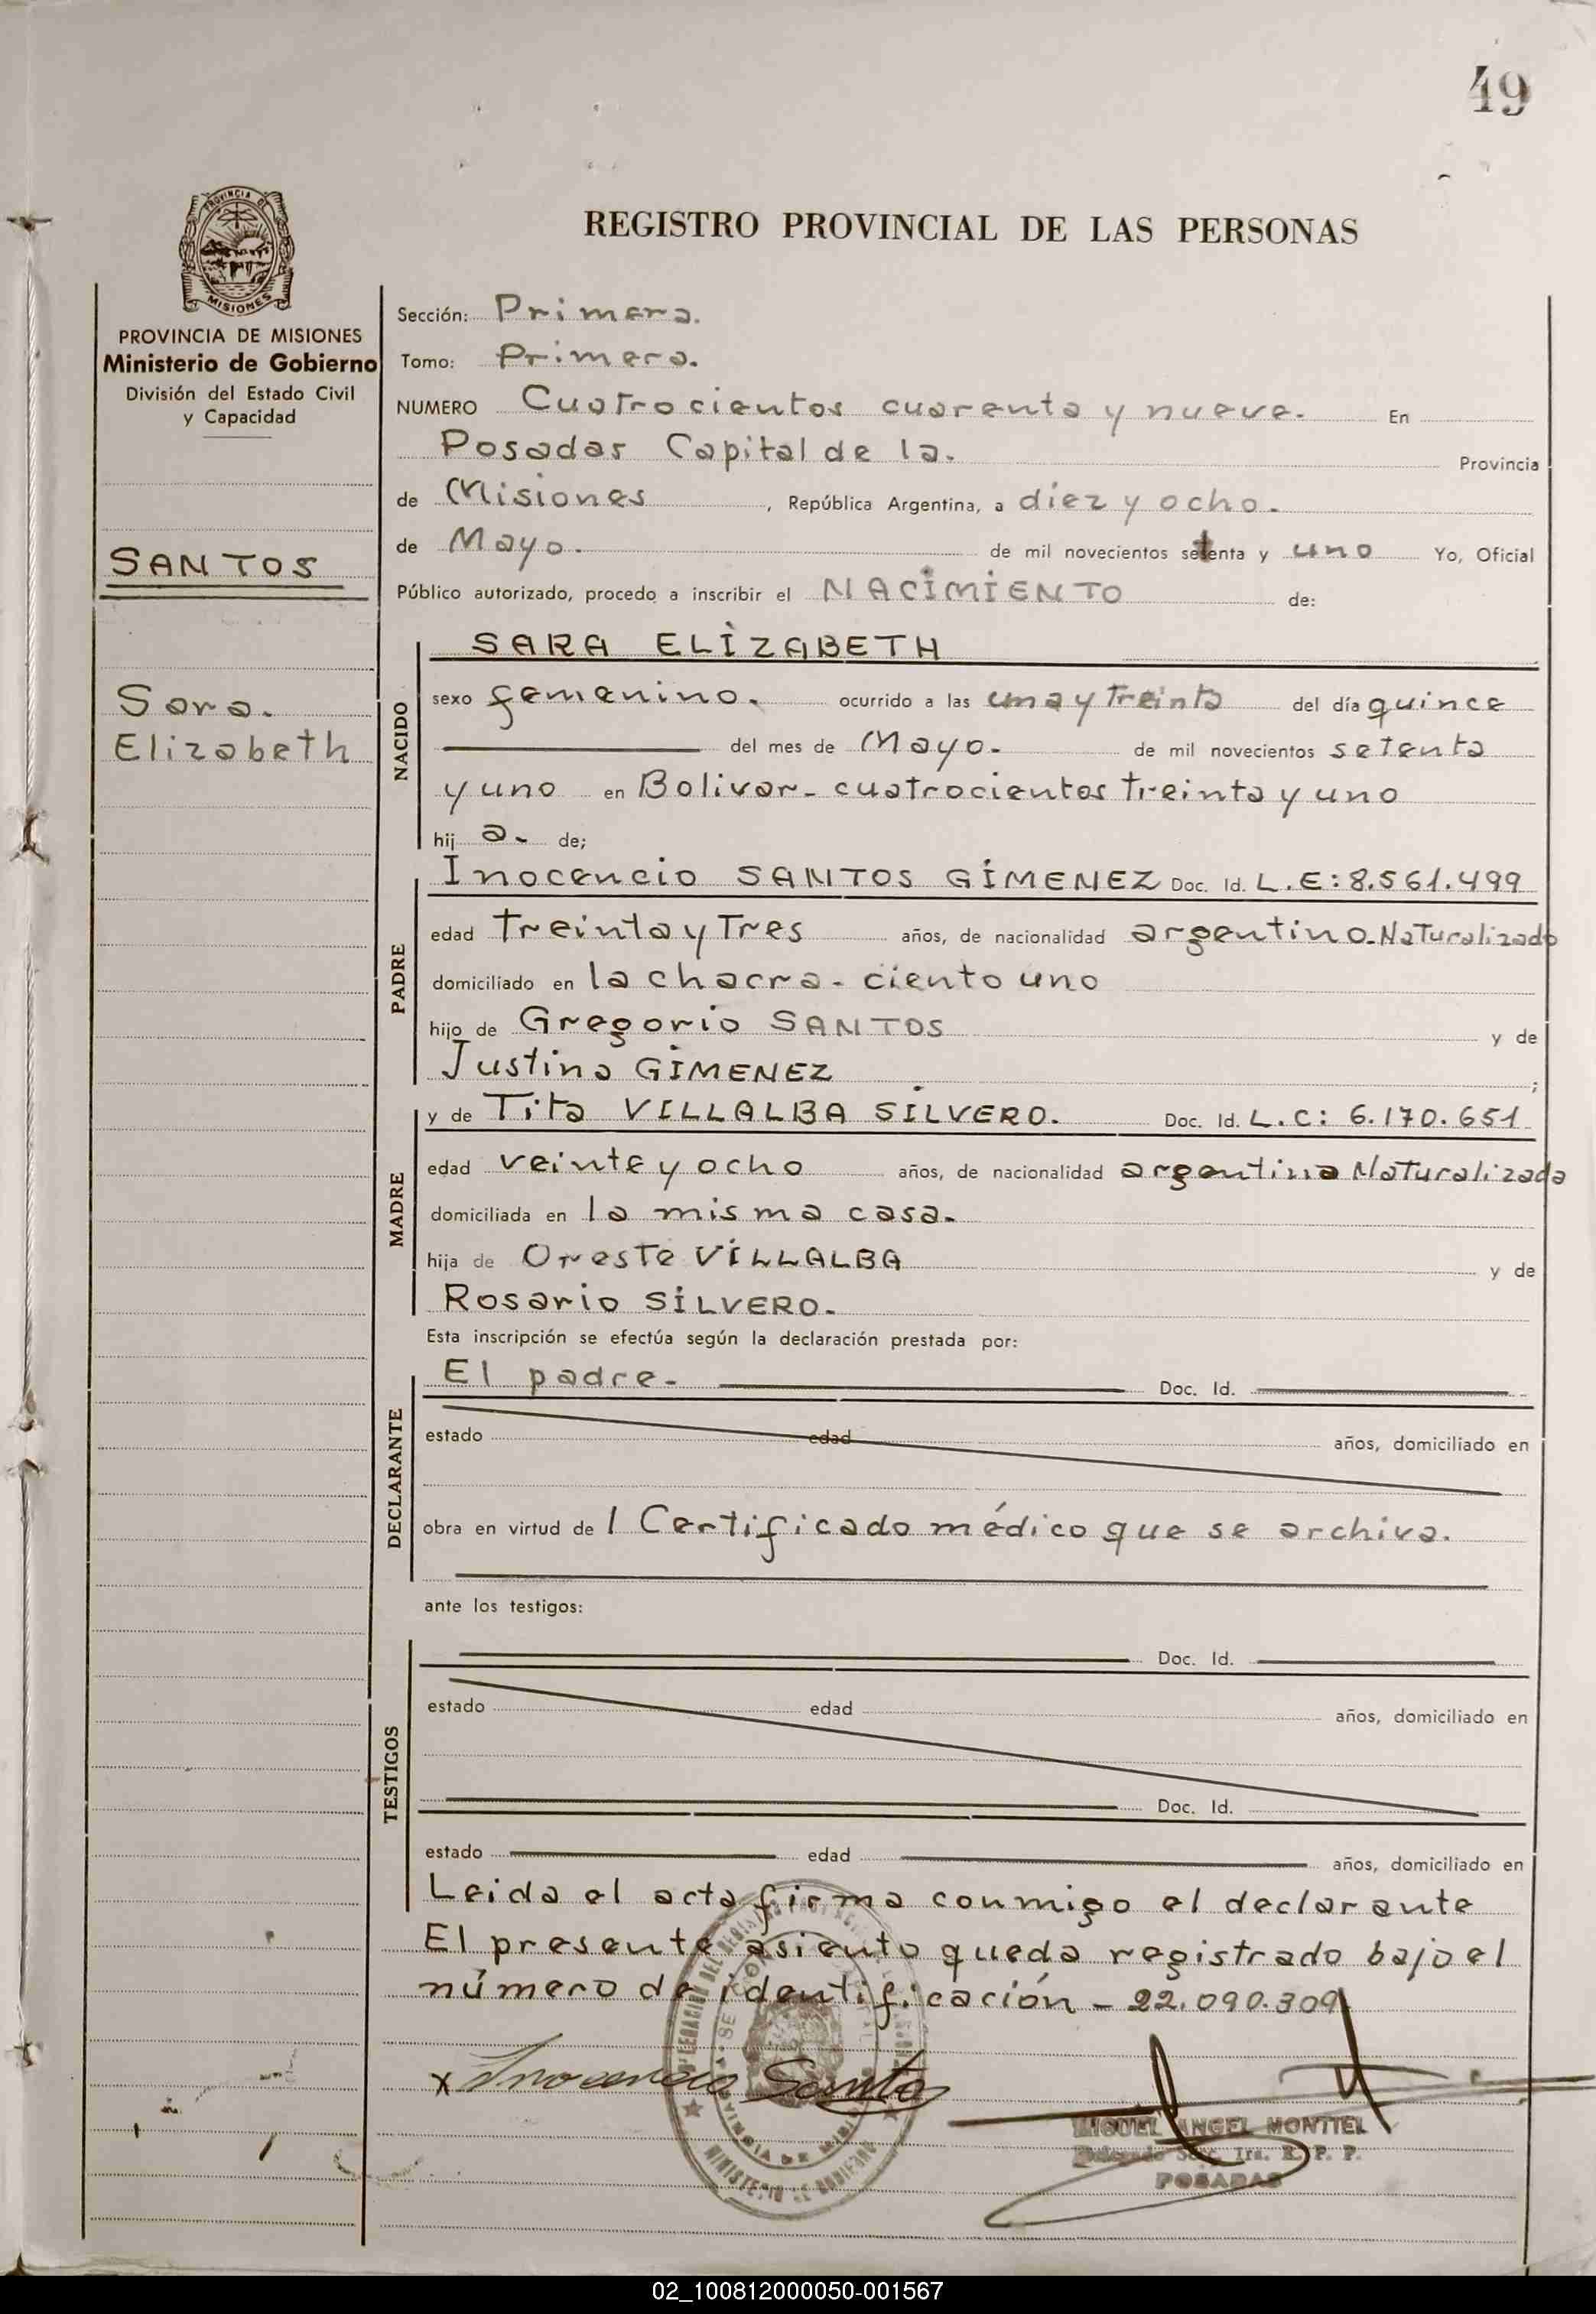 49
PROVINCIA DE
MISIONES
REGISTRO PROVINCIAL DE LAS PERSONAS
PROVINCIA DE MISIONES
Ministerio de Gobierno
División del Estado Civil
y Capacidad
SANTOS
Sara.
Elizabeth
Sección: Primera.
Tomo: Primero.
NUMERO Cuatrocientos cuarenta y nueve. En
Posadas Capital de la. Provincia
de Misiones, República Argentina, a diez y ocho.
de Mayo. de mil novecientos setenta y uno Yo, Oficial
Público autorizado, procedo a inscribir el NACIMIENTO de:
NACIDO
SARA ELIZABETH
sexo femenino. ocurrido a las una y Treinta del día quince
del mes de Mayo. de mil novecientos setenta
y uno en Bolivar - cuatrocientos treinta y uno
hij a. de;
PADRE
Inocencio SANTOS GIMENEZ Doc. Id. L.E: 8.561.499
edad Treinta y Tres años, de nacionalidad argentino. Naturalizado
domiciliado en la chacra - ciento uno
hijo de Gregorio SANTOS y de
Justina GIMENEZ ;
MADRE
y de Tita VILLALBA SILVERO. Doc. Id. L.C: 6.170.651
edad veinte y ocho años, de nacionalidad argentina Naturalizada
domiciliada en la misma casa.
hija de Oreste VILLALBA y de
Rosario SILVERO.
Esta inscripción se efectúa según la declaración prestada por:
DECLARANTE
El padre. Doc. Id.
estado edad años, domiciliado en
obra en virtud de 1 Certificado médico que se archiva.
ante los testigos:
TESTIGOS
Doc. Id.
estado edad años, domiciliado en
Doc. Id.
estado edad años, domiciliado en
Leida el acta firma conmigo el declarante
El presente asiento queda registrado bajo el
número de identificación - 22.090.309
x Inocencio Santos
MIGUEL ANGEL MONTIEL
Delegado Secc. Ira. R. P. P.
POSADAS
02_100812000050-001567